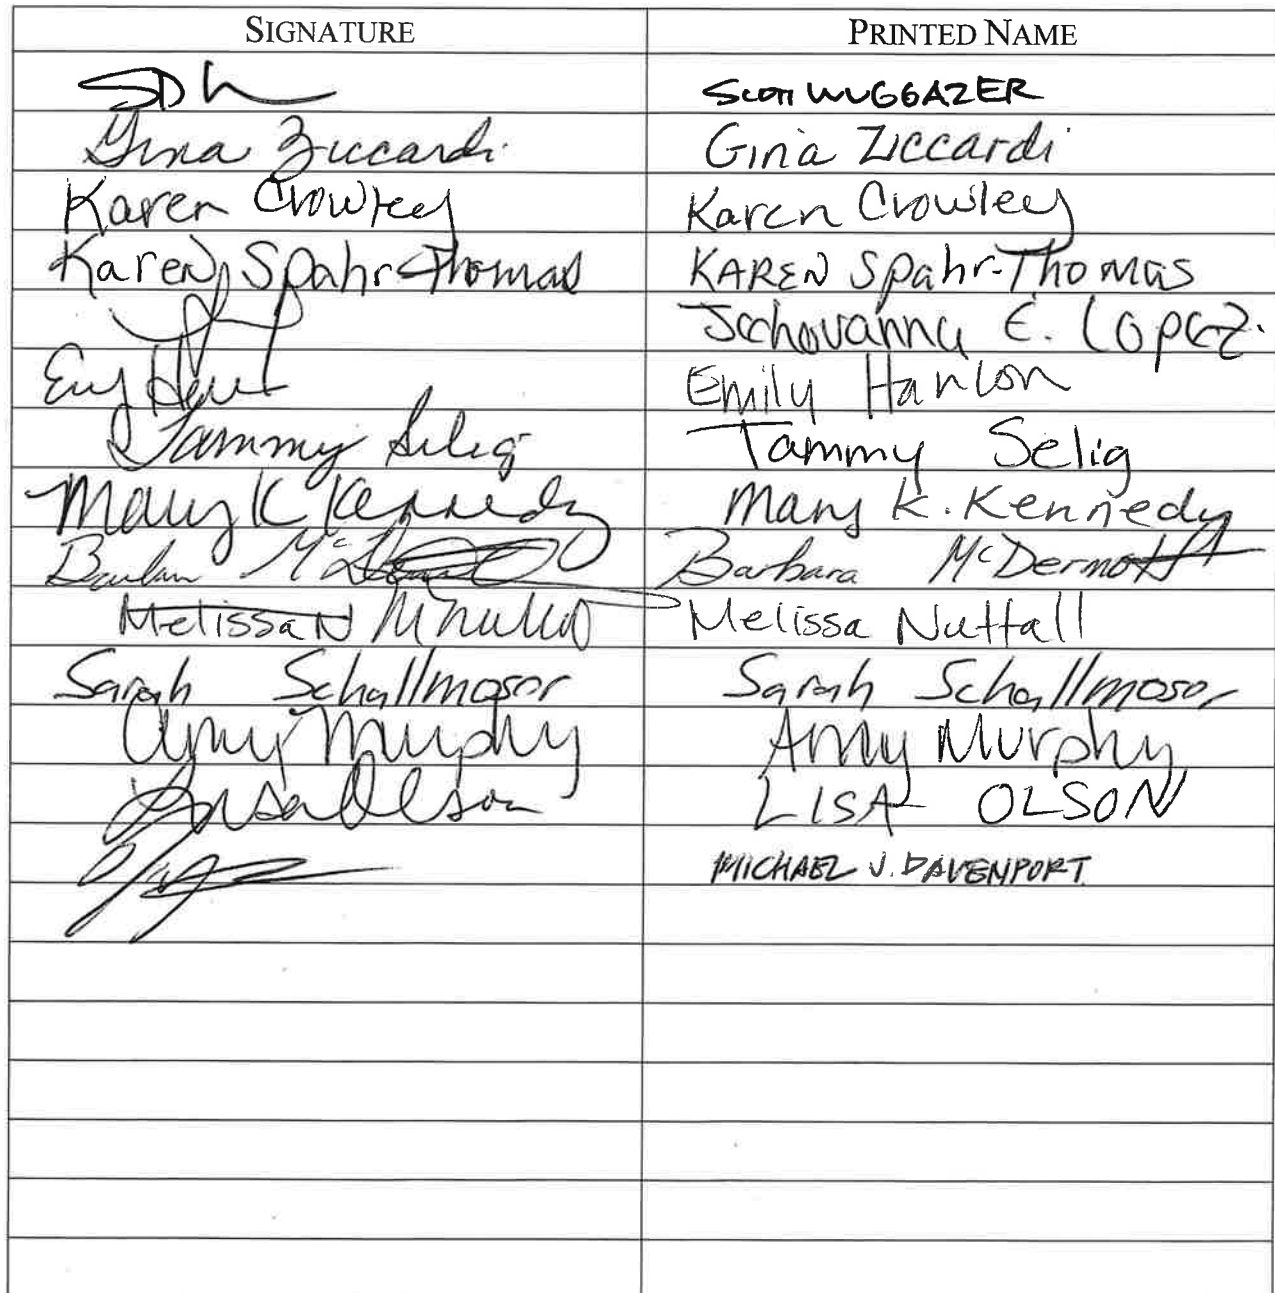 SIGNATURE PRINTED NAME
SCOTT WUGGAZER
Gina Ziccardi Gina Ziccardi
Karen Crowley Karen Crowley
Karen Spahr-Thomas KAREN Spahr-Thomas
E. Lopez.
Emily Hanlon
Tammy Selig Tammy Selig
Mary K Kennedy Mary K. Kennedy
Barbara McDermott
Melissa N Melissa Nuttall
Sarah Schallmoser Sarah Schallmoser
Amy Murphy Amy Murphy
Lisa Olson LISA OLSON
MICHAEL J. DAVENPORT